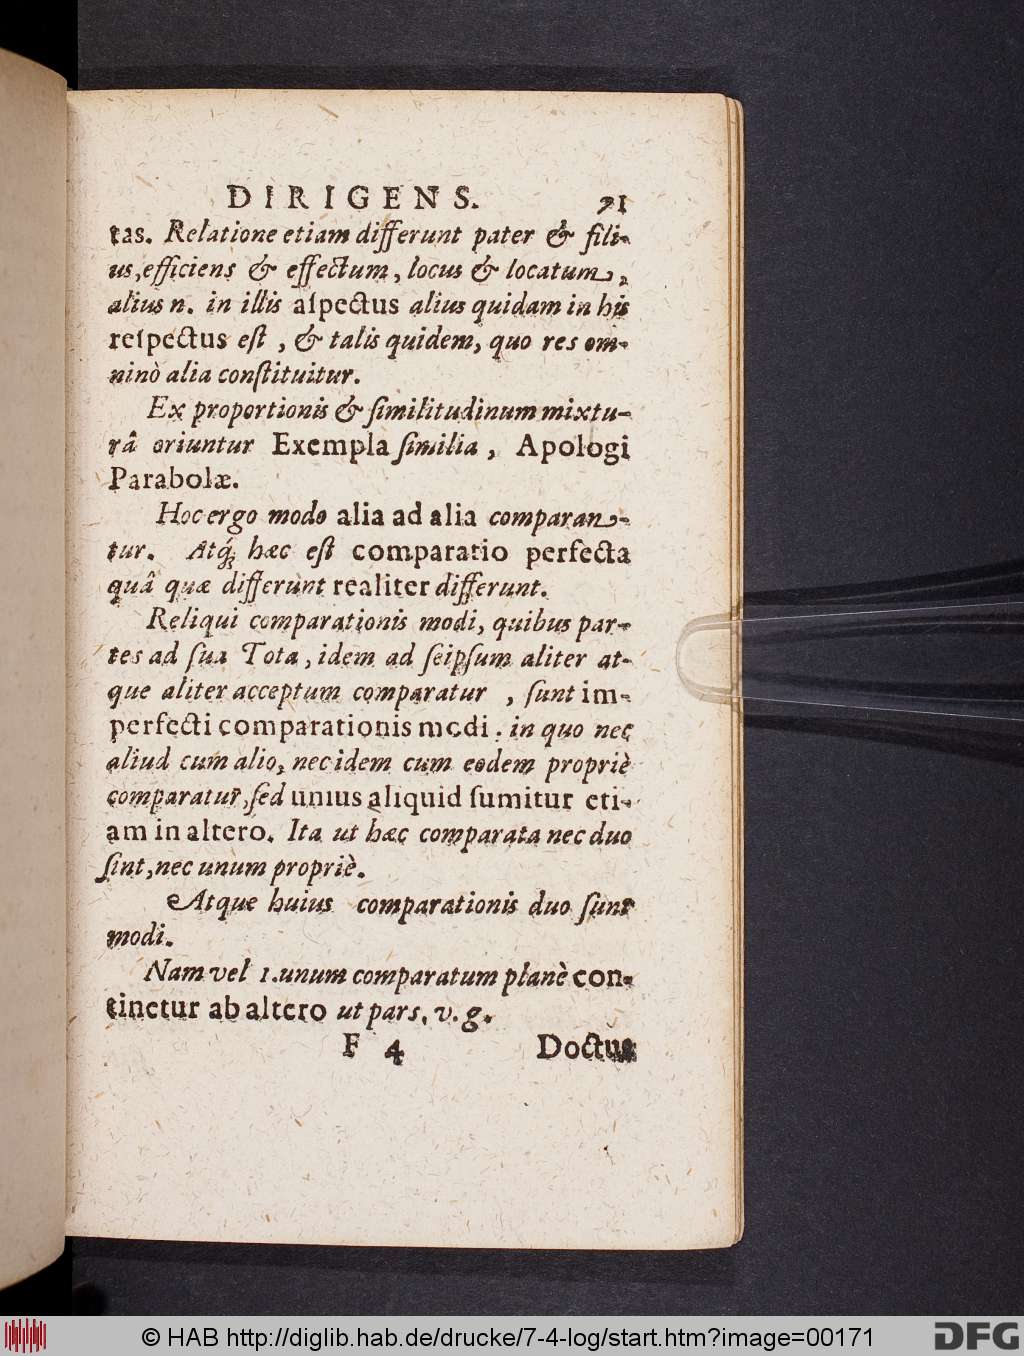 DIRIGENS. 71
tas. Relatione etiam differunt pater & fili-
us, efficiens & effectum, locus & locatum,
alius n. in illis aſpectus alius quidam in his
reſpectus eſt, & talis quidem, quo res om-
ninò alia conſtituitur.
Ex proportionis & ſimilitudinum mixtu-
râ oriuntur Exempla ſimilia, Apologi
Parabolæ.
Hoc ergo modo alia ad alia comparan-
tur. Atq́; hæc eſt comparatio perfecta
quâ quæ differunt realiter differunt.
Reliqui comparationis modi, quibus par-
tes ad ſua Tota, idem ad ſeipſum aliter at-
que aliter acceptum comparatur, ſunt im-
perfecti comparationis modi. in quo nec
aliud cum alio, nec idem cum eodem propriè
comparatur, ſed unius aliquid ſumitur eti-
am in altero. Ita ut hæc comparata nec duo
ſint, nec unum propriè.
Atque huius comparationis duo ſunt
modi.
Nam vel 1. unum comparatum planè con-
tinetur ab altero ut pars. v. g.
F 4 Doctus
© HAB http://diglib.hab.de/drucke/7-4-log/start.htm?image=00171 DFG